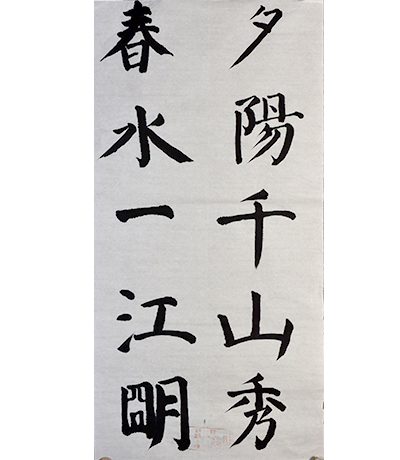 夕陽千山秀
春水一江朙